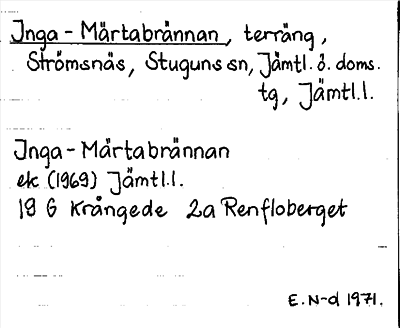 Inga-Märtabrännan, terräng,
Strömsnäs, Stuguns sn, Jämtl. ö. doms.
tg, Jämtl.l.
Inga-Märtabrännan
ek (1969) Jämtl.l.
19 G Krångede 2a Renfloberget
E. N-d 1971.